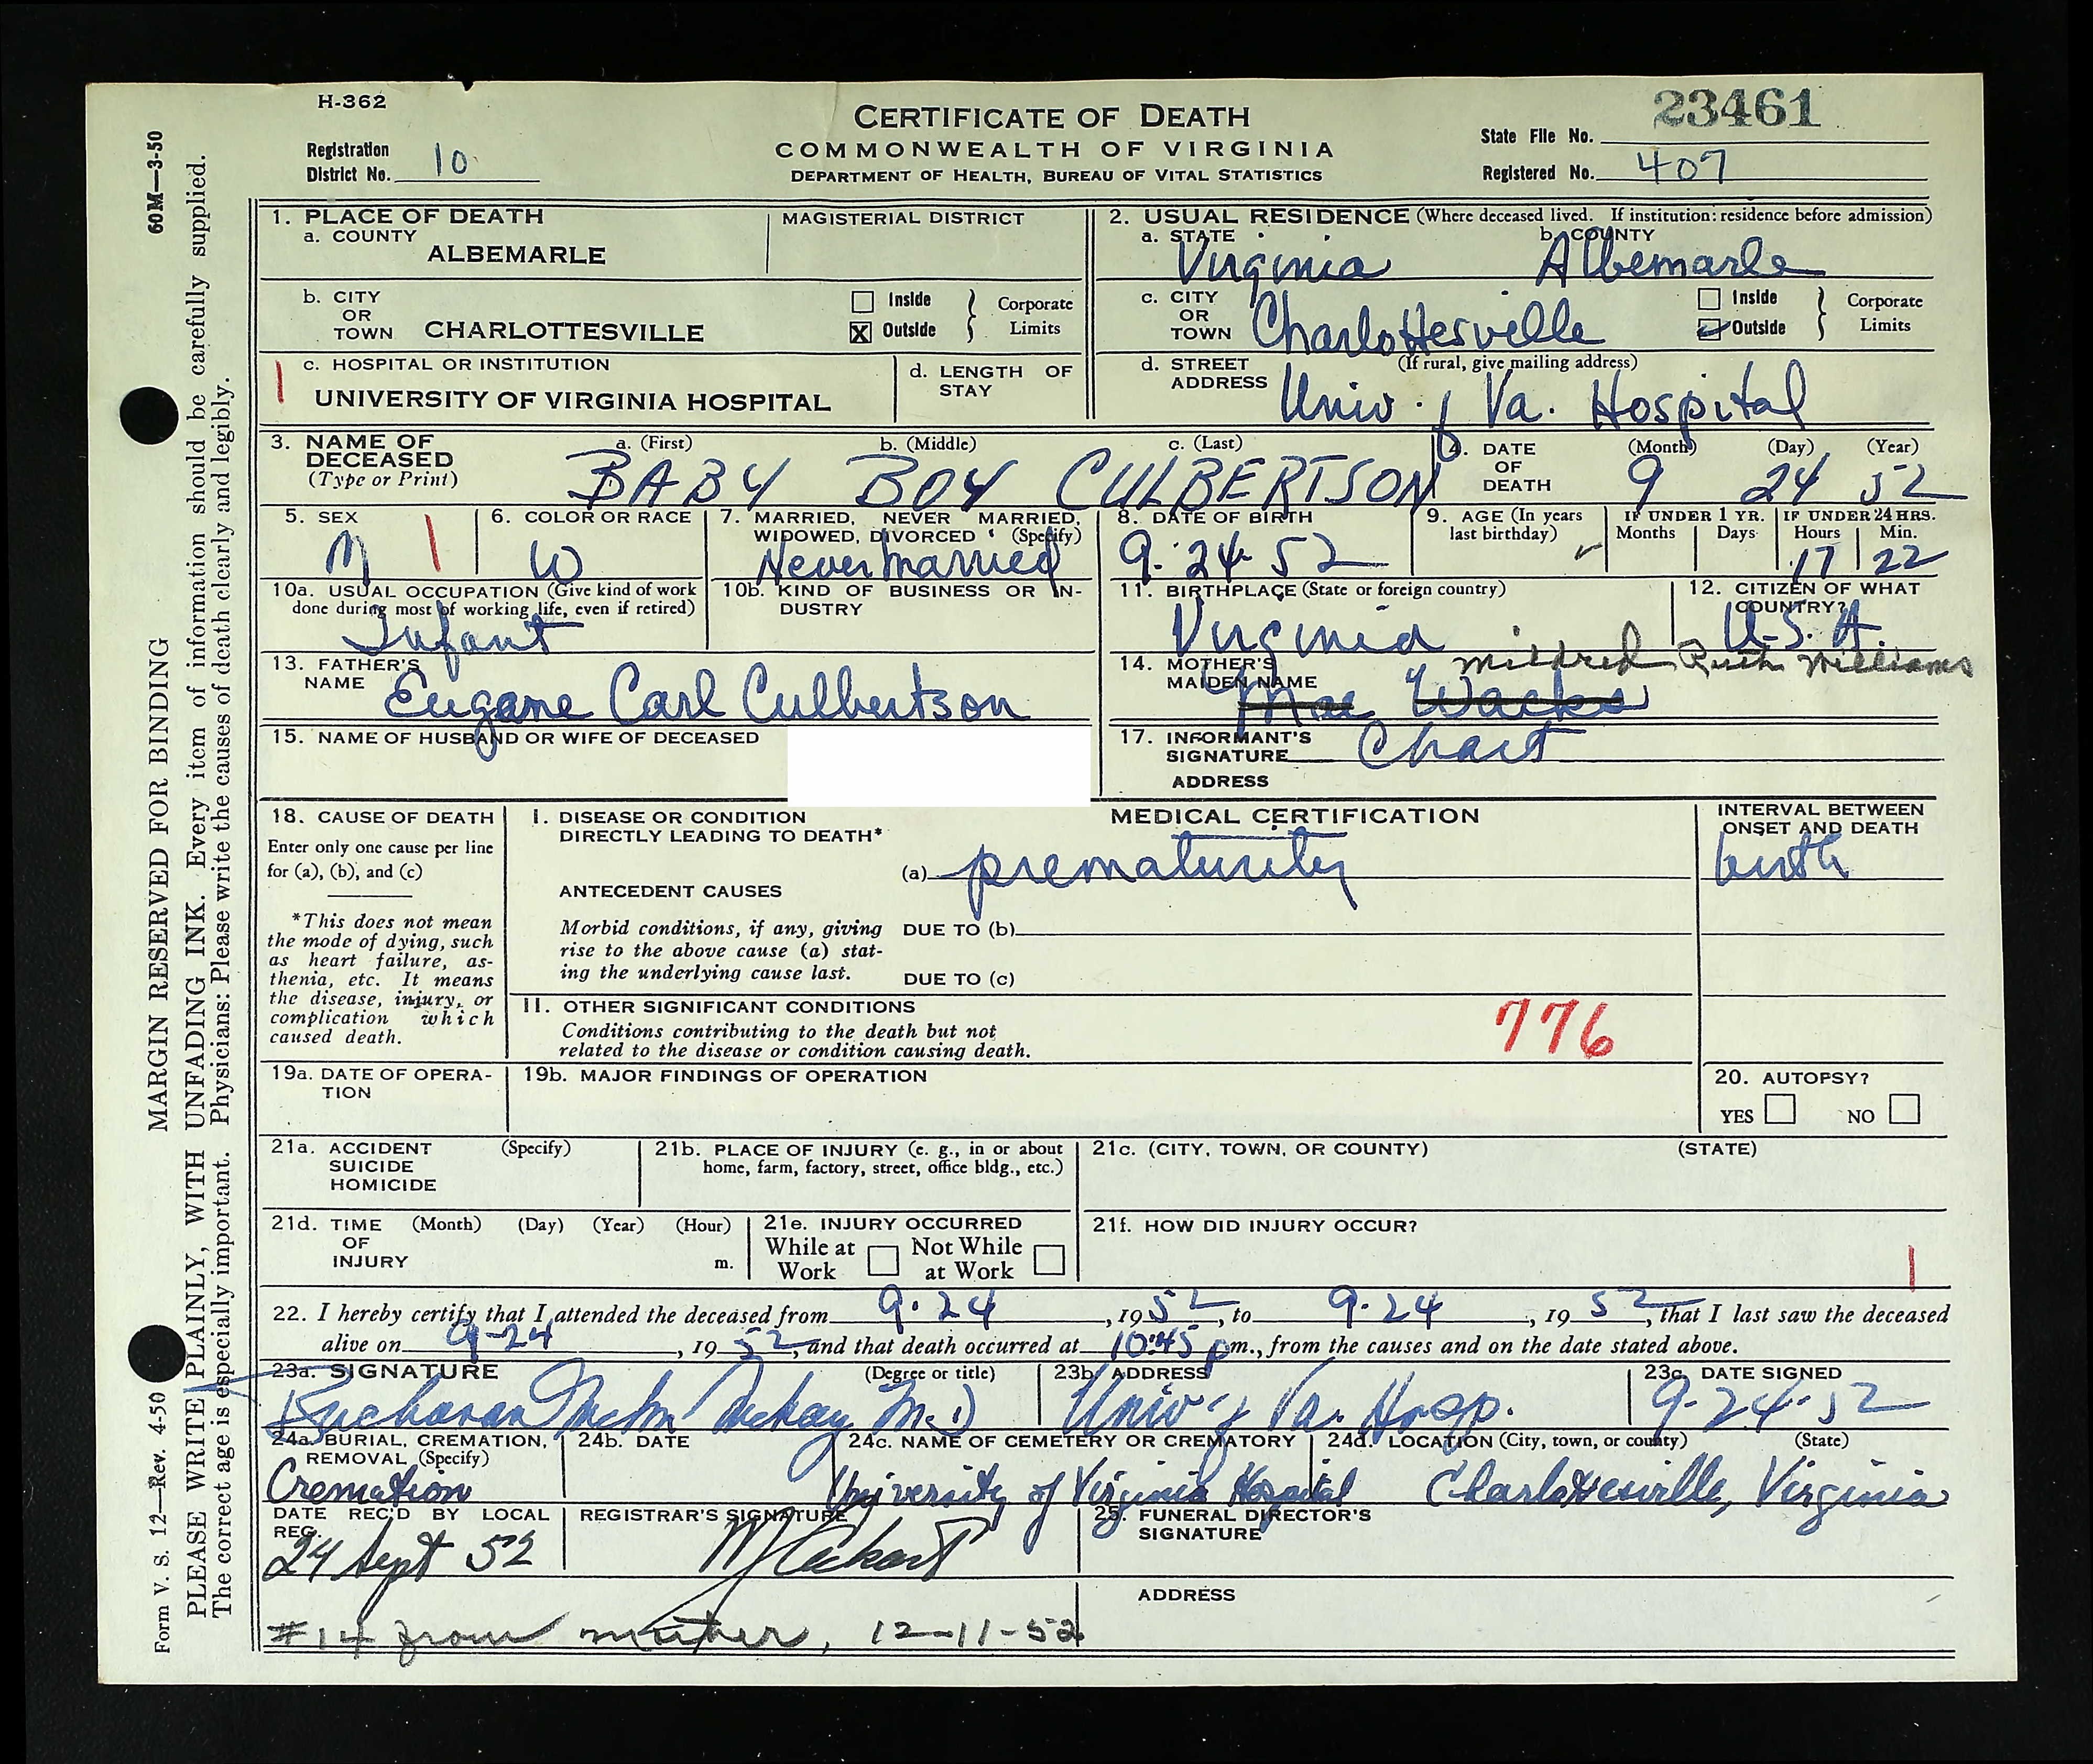 H-362
CERTIFICATE OF DEATH
COMMONWEALTH OF VIRGINIA
DEPARTMENT OF HEALTH, BUREAU OF VITAL STATISTICS
Registration District No. 10
State File No. 23461
Registered No. 407
60M—3-50
MARGIN RESERVED FOR BINDING
PLEASE WRITE PLAINLY, WITH UNFADING INK. Every item of information should be carefully supplied.
The correct age is especially important. Physicians: Please write the causes of death clearly and legibly.
Form V. S. 12—Rev. 4-50
1. PLACE OF DEATH
a. COUNTY
ALBEMARLE
MAGISTERIAL DISTRICT
b. CITY OR TOWN CHARLOTTESVILLE
Inside
X Outside
Corporate Limits
1
c. HOSPITAL OR INSTITUTION
UNIVERSITY OF VIRGINIA HOSPITAL
d. LENGTH OF STAY
2. USUAL RESIDENCE (Where deceased lived. If institution: residence before admission)
a. STATE Virginia
b. COUNTY Albemarle
c. CITY OR TOWN Charlottesville
Inside
Outside
Corporate Limits
d. STREET ADDRESS (If rural, give mailing address)
Univ. of Va. Hospital
3. NAME OF DECEASED (Type or Print)
a. (First) b. (Middle) c. (Last)
BABY BOY CULBERTSON
4. DATE OF DEATH (Month) (Day) (Year)
9 24 52
5. SEX
M 1
6. COLOR OR RACE
W
7. MARRIED, NEVER MARRIED, WIDOWED, DIVORCED (Specify)
Never Married
8. DATE OF BIRTH
9-24-52
9. AGE (In years last birthday)
IF UNDER 1 YR. Months Days
IF UNDER 24 HRS. Hours Min.
17 22
10a. USUAL OCCUPATION (Give kind of work done during most of working life, even if retired)
Infant
10b. KIND OF BUSINESS OR INDUSTRY
11. BIRTHPLACE (State or foreign country)
Virginia
12. CITIZEN OF WHAT COUNTRY?
U.S.A.
13. FATHER'S NAME
Eugene Carl Culbertson
14. MOTHER'S MAIDEN NAME
Mildred Ruth Williams
Mae Wacks
15. NAME OF HUSBAND OR WIFE OF DECEASED
17. INFORMANT'S SIGNATURE Chart
ADDRESS
18. CAUSE OF DEATH
Enter only one cause per line for (a), (b), and (c)
*This does not mean the mode of dying, such as heart failure, asthenia, etc. It means the disease, injury, or complication which caused death.
MEDICAL CERTIFICATION
I. DISEASE OR CONDITION DIRECTLY LEADING TO DEATH*
(a) prematurity
INTERVAL BETWEEN ONSET AND DEATH
birth
ANTECEDENT CAUSES
Morbid conditions, if any, giving rise to the above cause (a) stating the underlying cause last.
DUE TO (b)
DUE TO (c)
II. OTHER SIGNIFICANT CONDITIONS
Conditions contributing to the death but not related to the disease or condition causing death.
776
19a. DATE OF OPERATION
19b. MAJOR FINDINGS OF OPERATION
20. AUTOPSY?
YES NO
21a. ACCIDENT SUICIDE HOMICIDE (Specify)
21b. PLACE OF INJURY (e. g., in or about home, farm, factory, street, office bldg., etc.)
21c. (CITY, TOWN, OR COUNTY) (STATE)
21d. TIME OF INJURY (Month) (Day) (Year) (Hour) m.
21e. INJURY OCCURRED
While at Work Not While at Work
21f. HOW DID INJURY OCCUR?
1
22. I hereby certify that I attended the deceased from 9-24, 1952, to 9-24, 1952, that I last saw the deceased
alive on 9-24, 1952, and that death occurred at 10:45 pm., from the causes and on the date stated above.
23a. SIGNATURE (Degree or title)
Buchanan McKay M.D
23b. ADDRESS
Univ of Va. Hosp.
23c. DATE SIGNED
9-24-52
24a. BURIAL, CREMATION, REMOVAL (Specify)
Cremation
24b. DATE
24c. NAME OF CEMETERY OR CREMATORY
University of Virginia Hospital
24d. LOCATION (City, town, or county) (State)
Charlottesville, Virginia
DATE REC'D BY LOCAL REG.
24 Sept 52
REGISTRAR'S SIGNATURE
25. FUNERAL DIRECTOR'S SIGNATURE
ADDRESS
#14 from mother, 12-11-52